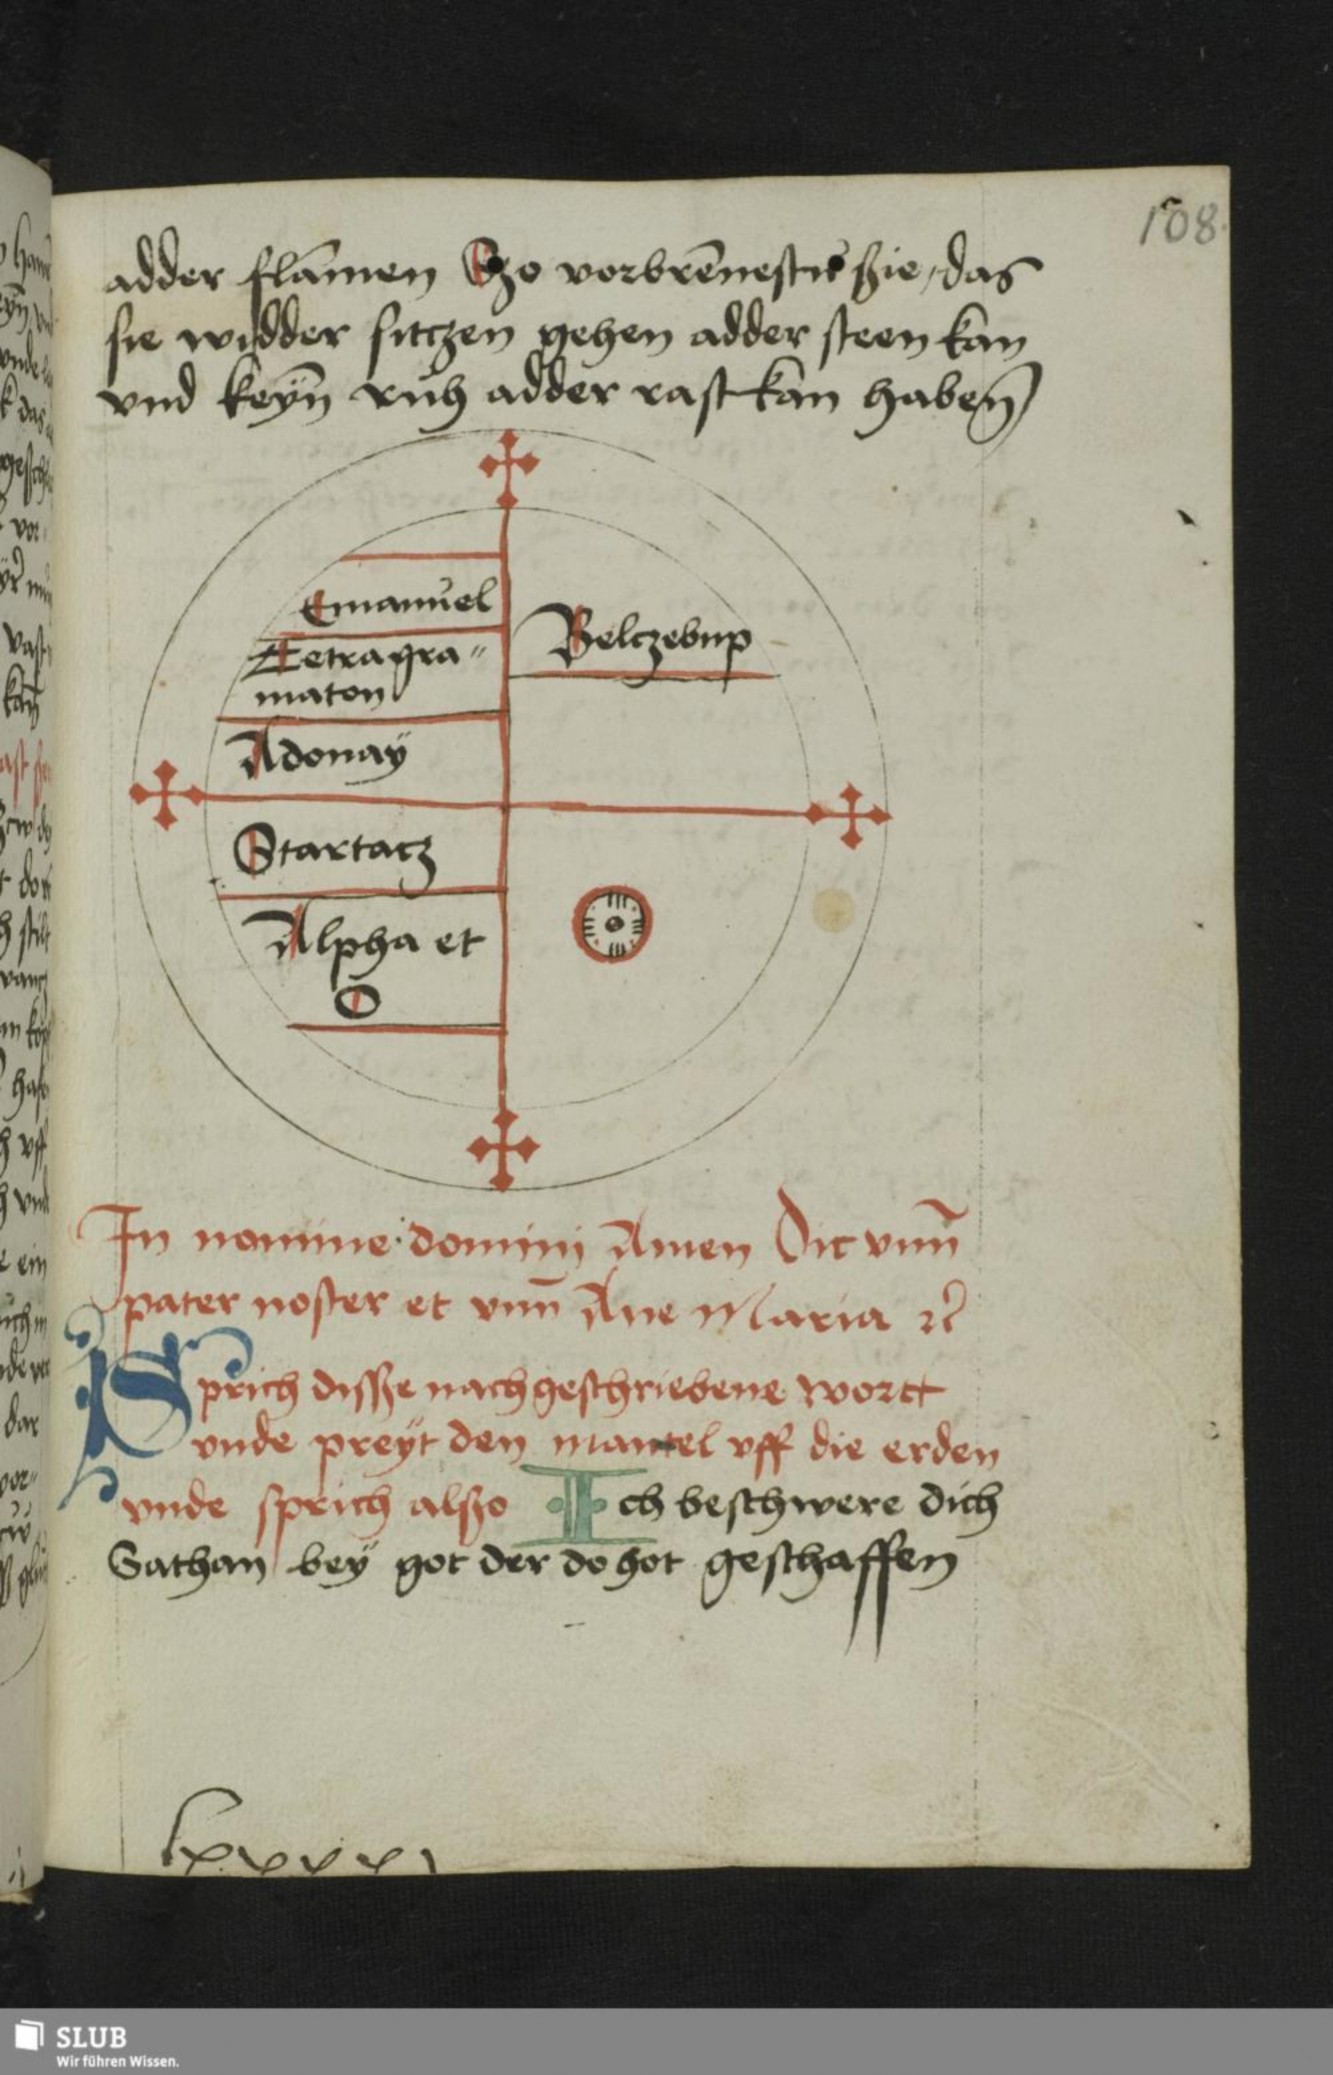 108.
adder flām̄en Szo vorbrēnestu ßie, das
sie widder sitczen gehen adder steen kan
vnd keyn̄ ruh adder rast kan haben̄
Emanuel
Tetragra〃
maton
Adonaÿ
Belczebup
Startacz
Alpha et
O
In nomine domini Amen Dic vnn̄
pater noster et vnn̄ Aue Maria
Sprich disße nachgeschriebene wortt
vnde preÿt den mantel vff die erden
vnde sprich alßo Ich beschwere dich
Sathan beÿ got der do hot geschaffen
lxxxxi
SLUB
Wir führen Wissen.